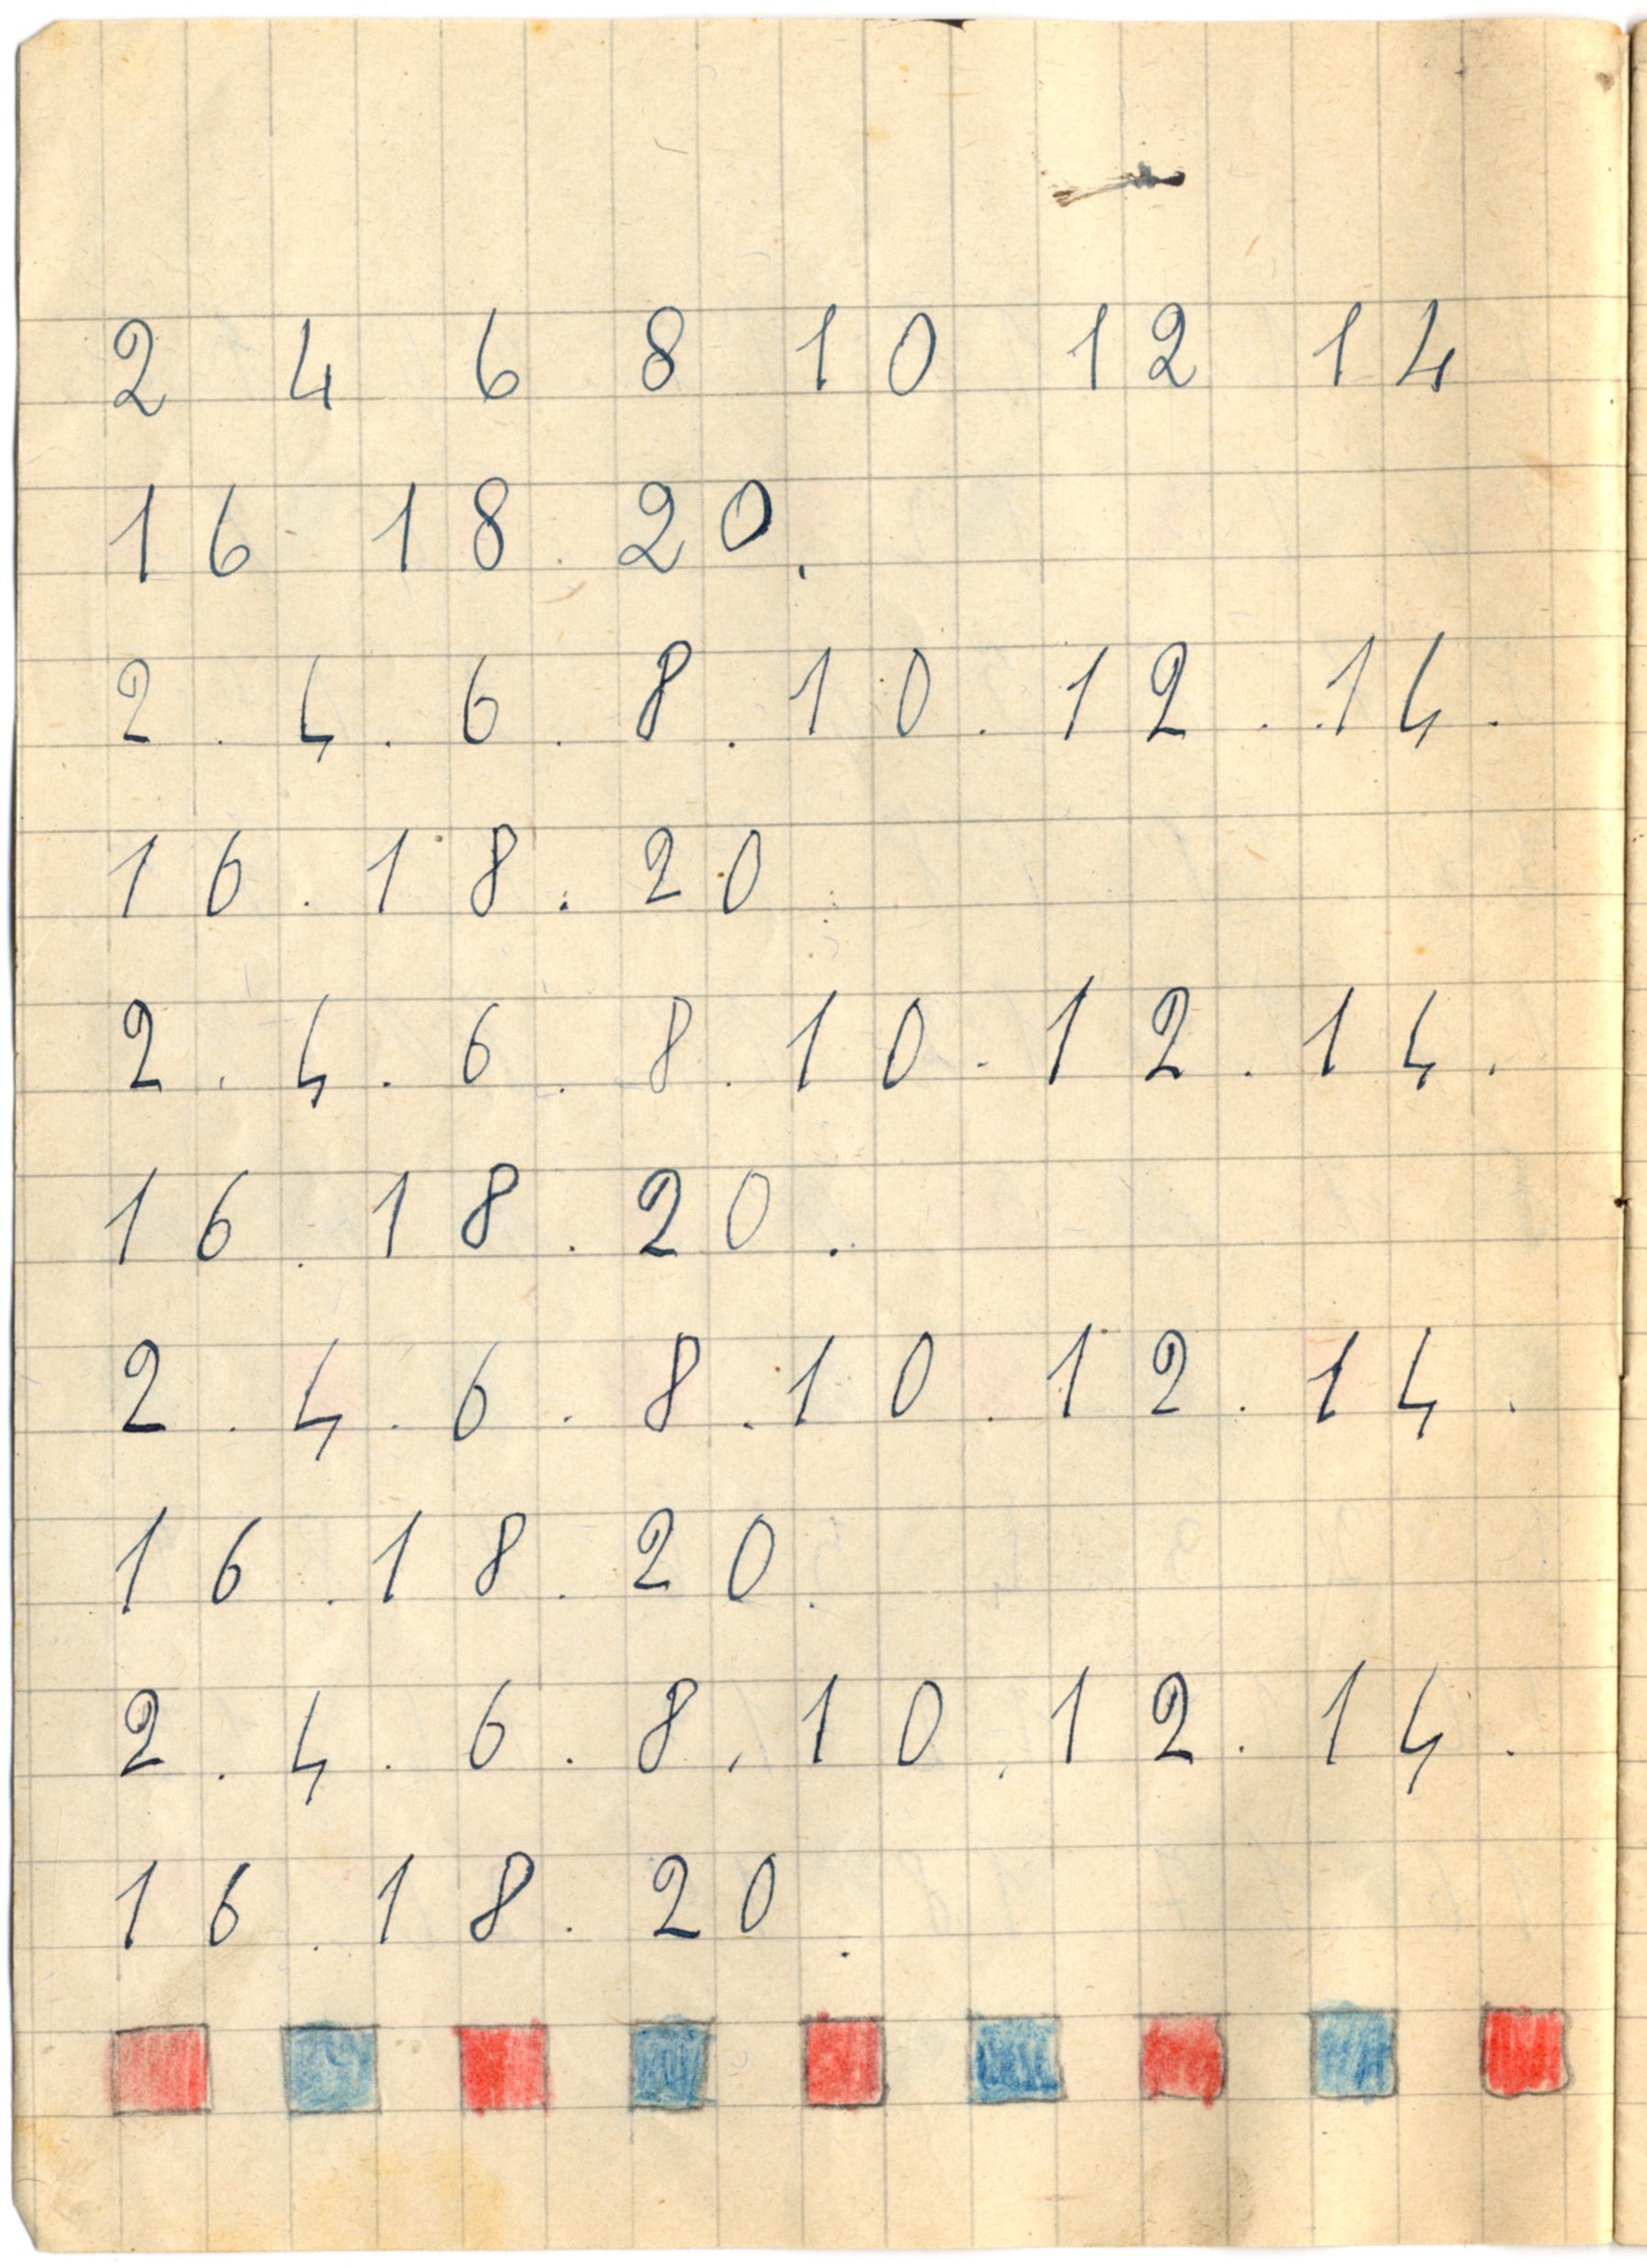 2 4 6 8 10 12 14
16 18. 20.
2. 4. 6. 8. 10. 12. 14.
16. 18. 20
2. 4. 6. 8. 10. 12. 14.
16. 18. 20.
2. 4. 6. 8. 10. 12. 14.
16. 18. 20.
2. 4. 6. 8. 10. 12. 14.
16. 18. 20.